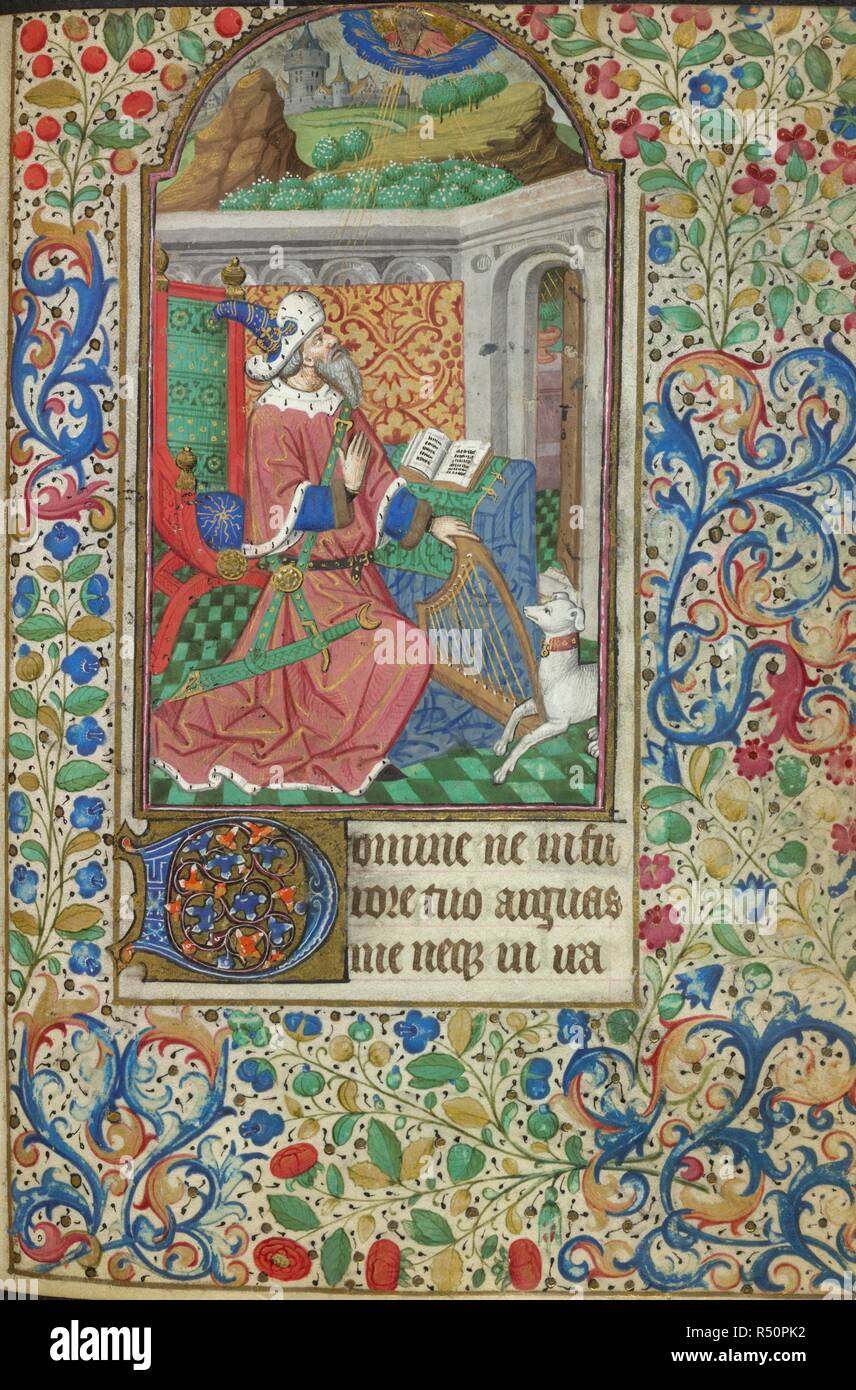 Domine ne in fu
rore tuo arguas
me neqꝫ in ira
alamy
Image ID: R50PK2
www.alamy.com